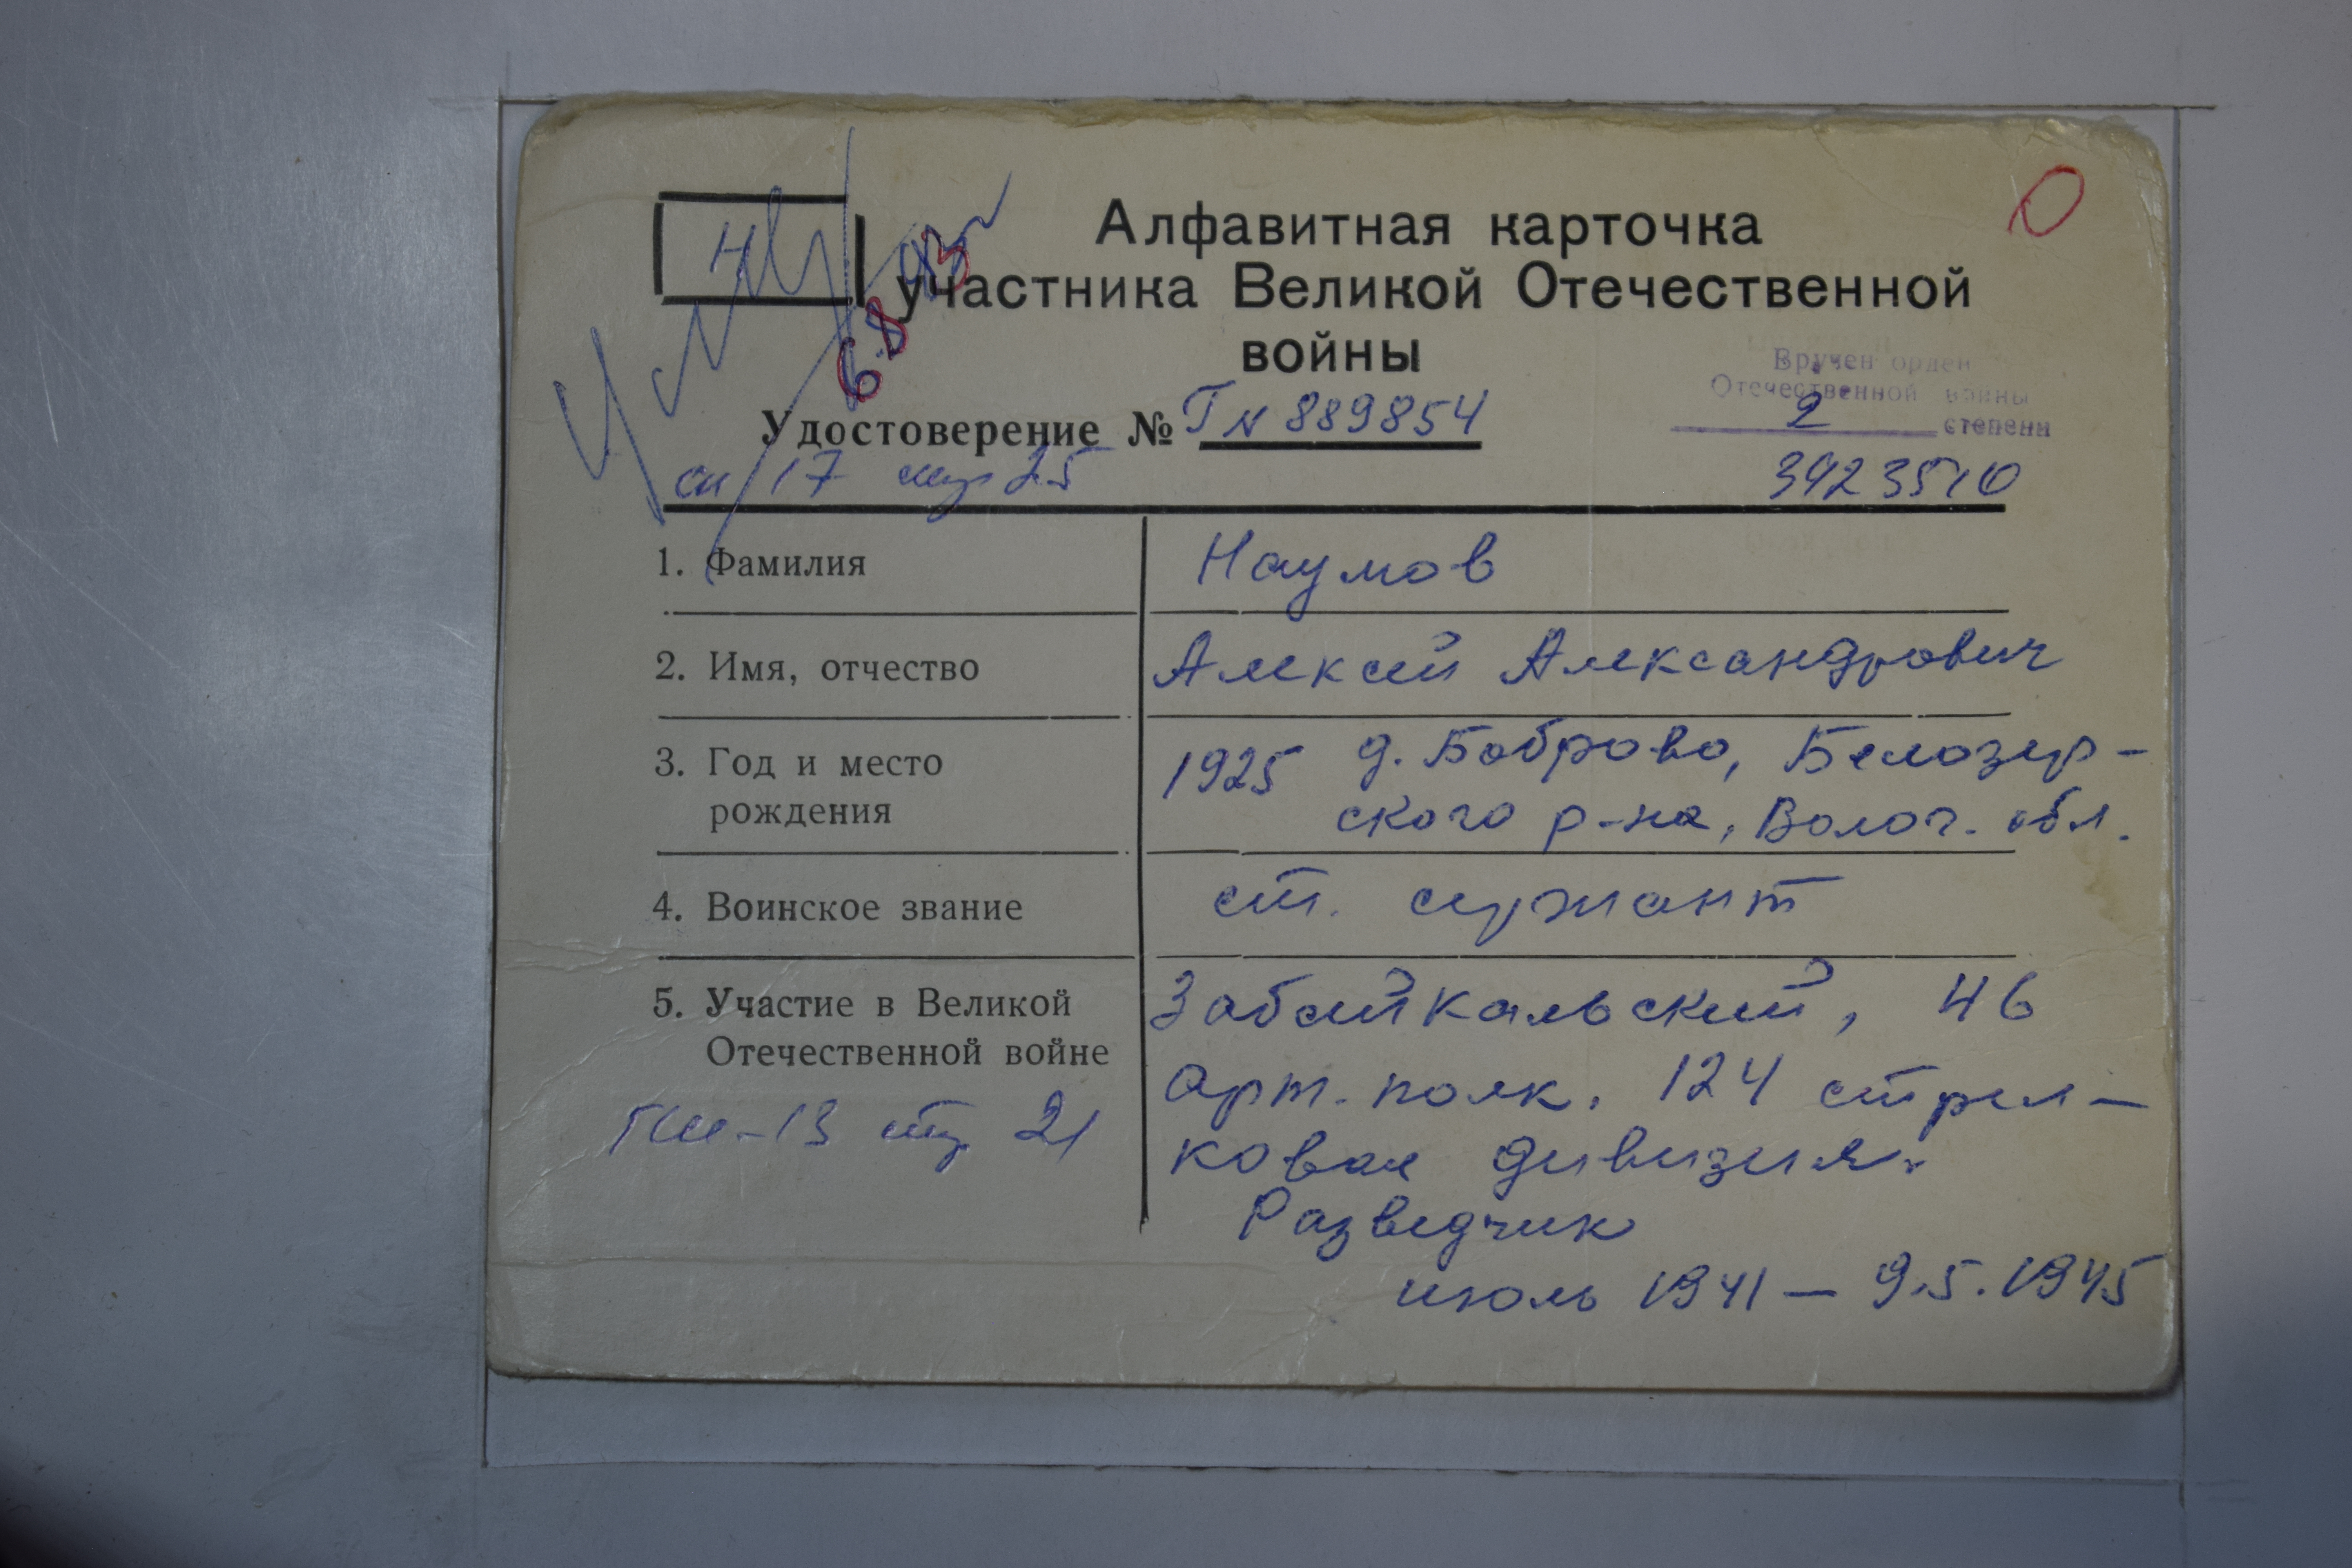 Н
О
Алфавитная карточка
участника Великой Отечественной
войны
Умер
6.8.93г
Вручен орден
Отечественной войны
2 степени
Удостоверение № Г N 889854
сп 17 стр 25
3423510
1. Фамилия
Наумов
2. Имя, отчество
Алексей Александрович
3. Год и место
рождения
1925 д. Боброво, Белозер-
ского р-на, Волог. обл.
4. Воинское звание
ст. сержант
5. Участие в Великой
Отечественной войне
Забайкальский, 46
арт. полк. 124 стрел-
ковая дивизия.
Разведчик
июль 1941 — 9.5.1945
стр 21